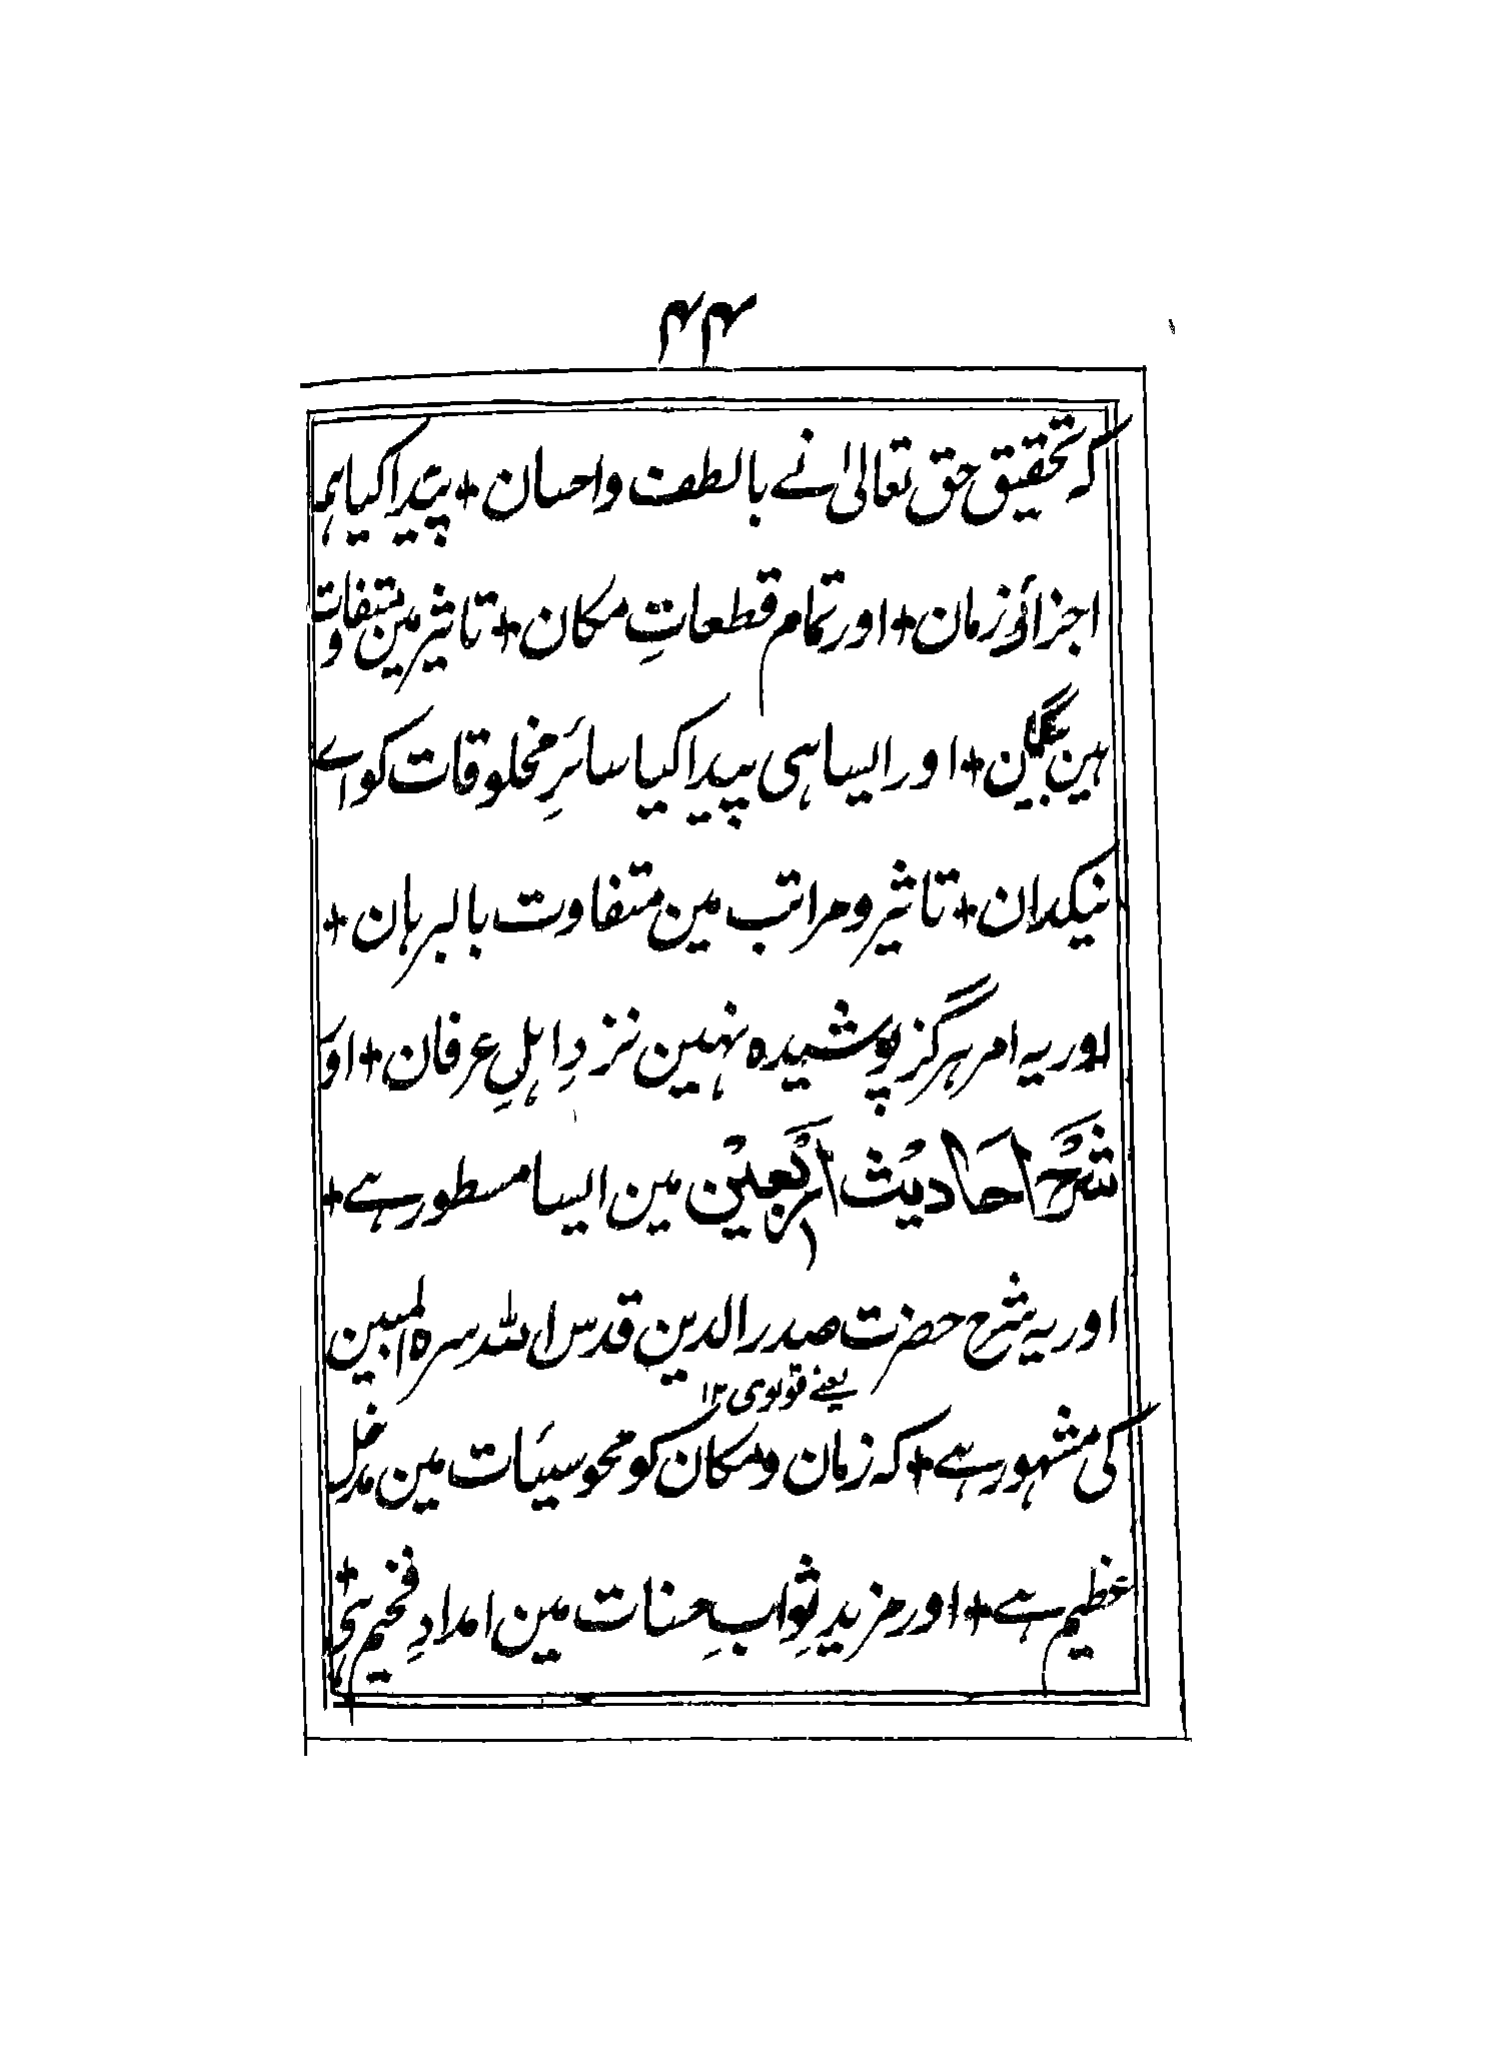 ۴۴
کہ تحقیق حق تعالیٰ نے بالطف واحسان + پیدا کیا ہمہ
اجزاؤ زمان + اور تمام قطعاتِ مکان + تاثیر مین متفاوت
ہین بیگمان + اور ایسا ہی پیدا کیا سائرِ مخلوقات کو اے
نیکدان + تاثیر و مراتب مین متفاوت بالبرہان +
اور یہ امر ہرگز پوشیدہ نہین نزدِ اہلِ عرفان + اور
شَرْح اَحَادیْث اَرْبَعِیْن مین ایسا مسطور ہے +
اور یہ شرح حضرت صدرالدین قدس اللہ سرہ المبین
یعنے قونوی ۱۲
کی مشہور ہے + کہ زمان و مکان کو محوسیئات مین مدخل
عظیم ہے + اور مزیدِ ثوابِ حسنات مین امدادِ فخیم ہی +